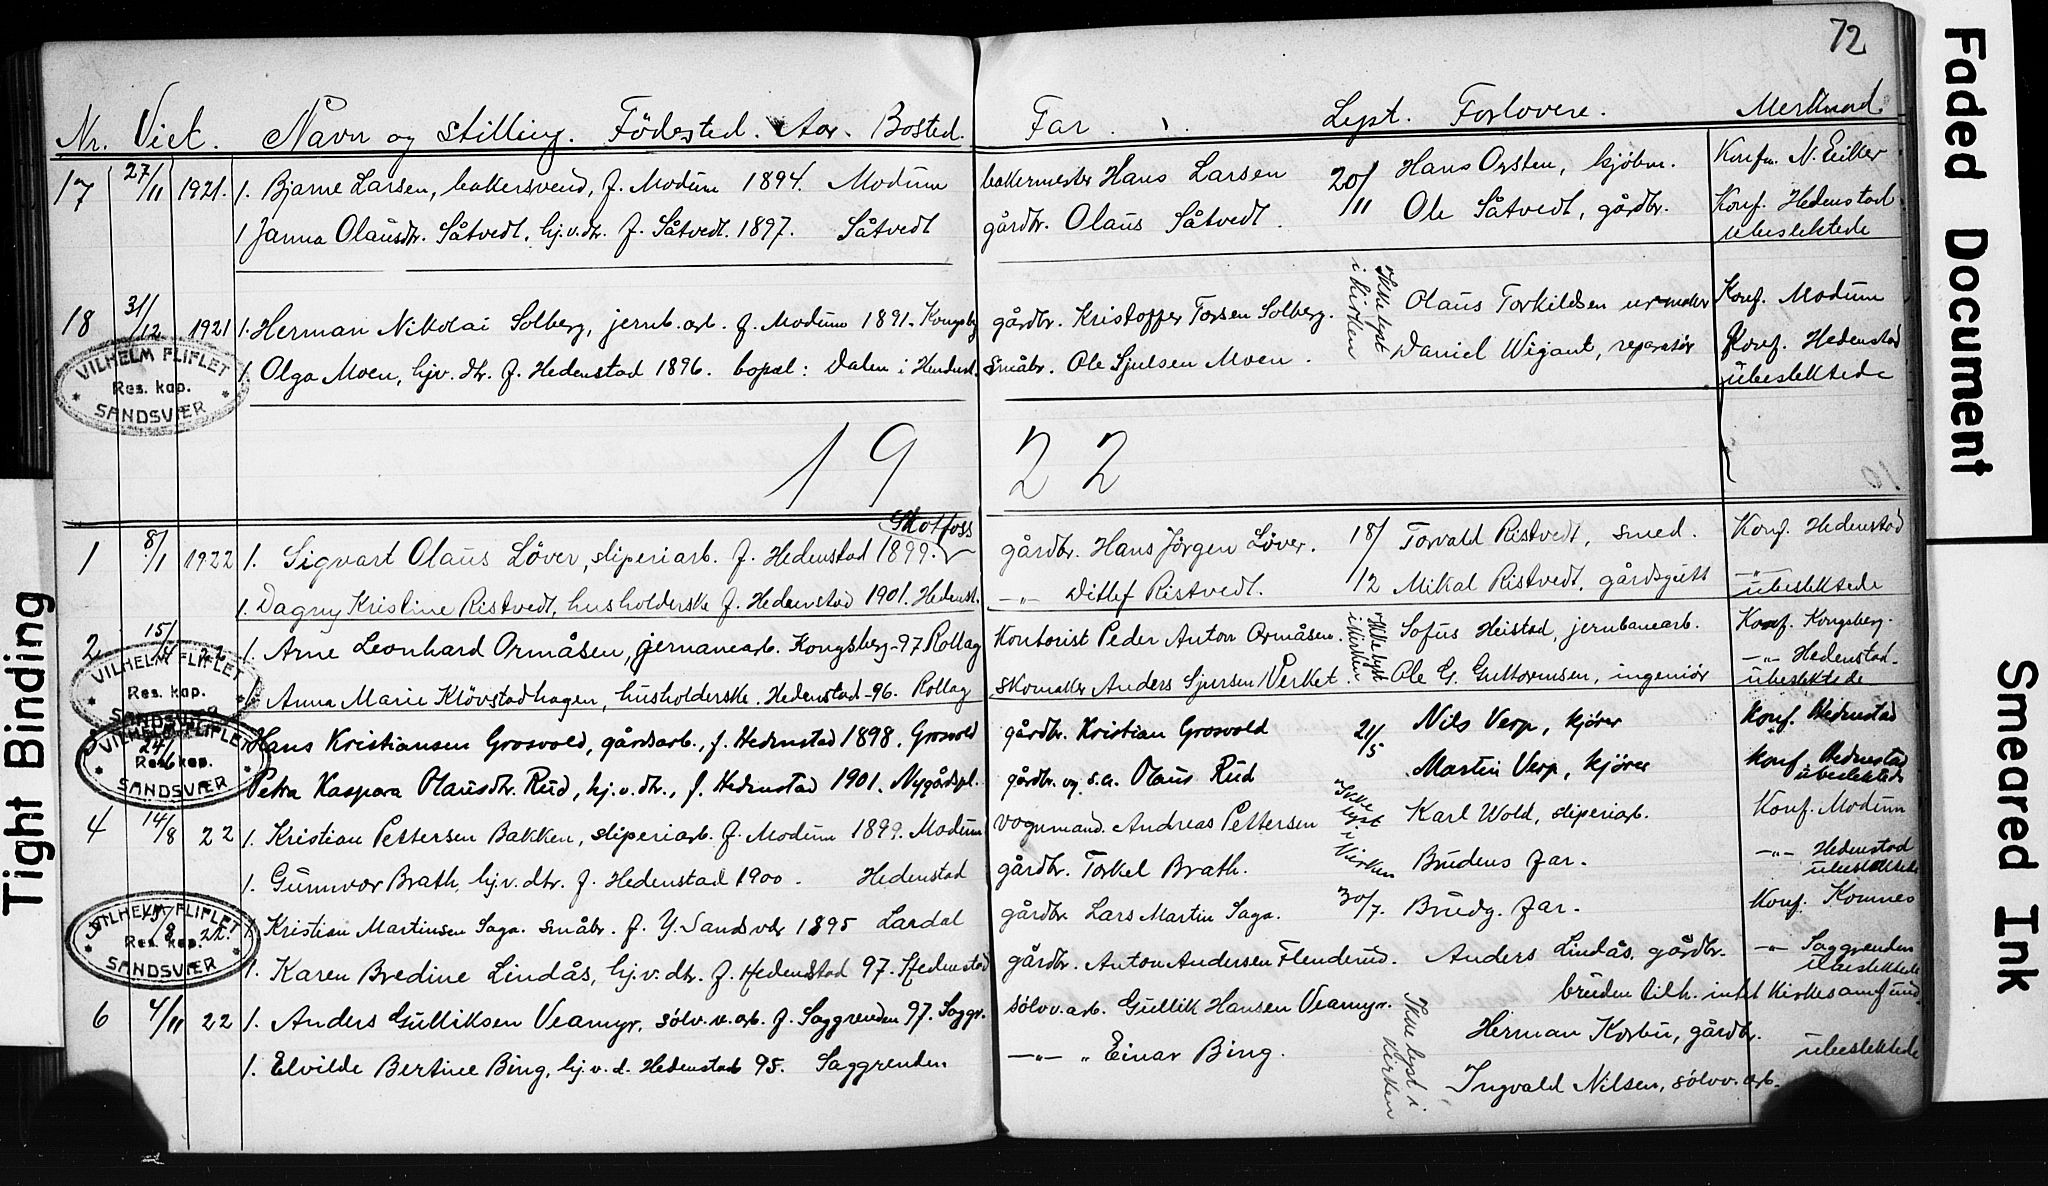 72
Nr. Viet. Navn og stilling. Födested. Aar. Bosted. Far. Lyst. Forlovere. Merknad
17 27/11 1921. 1. Bjarne Larsen, bakersvend, f. Modum 1894. Modum bakermester Hans Larsen 20/11 Hans Orsten, kjöbm. Konf. N. Eiker
1 Janna Olausdtr. Såtvedt, hj.v.dtr. f. Såtvedt. 1897. Såtvedt gårdbr. Olaus Såtvedt. Ole Såtvedt, gårdbr. Konf. Hedenstad
ubeslektede
18 31/12 1921 1. Herman Nikolai Solberg, jernb.arb. f. Modum 1891. Kongsbg gårdbr. Kristoffer Torsen Solberg. Ikke lyst i kirken Olaus Torkildsen urmaker Konf. Modum
1. Olga Moen, hjv. dtr. f. Hedenstad 1896. bopæl: Dalen i Hendenst. Småbr. Ole Sjulsen Moen. Daniel Wigant, reparatör Konf. Hedenstad
ubeslektede
VILHELM FLIFLET
Res. kap.
SANDSVÆR
1922
Skotfoss
1 8/1 1922 1. Sigvart Olaus Löver, sliperiarb. f. Hedenstad 1899. gårdbr. Hans Jörgen Löver. 18/12 Torvald Ristvedt, smed. Konf. Hedenstad
1. Dagny Kristine Ristvedt, husholderske f. Hedenstad 1901. Hedenst. -"- Ditlef Ristvedt. Mikal Ristvedt, gårdsgutt -"-
ubeslektede
2 15/4 22 1. Arne Leonhard Ormåsen, jernanearb. Kongsberg -97 Rollag Kontorist Peder Anton Ormåsen. Ikke lyst i kirken Sofus Heistad, jernbanearb. Konf. Kongsberg.
1. Anna Marie Klövstadhagen, husholderske. Hedenstad -96. Rollag Skomaker Anders Sjursen/Verket Ole G. Guttormsen, ingeniör -"- Hedenstad-
ubeslektede
VILHELM FLIFLET
Res. kap.
SANDSVÆR
24/6 Hans Kristiansen Grosvold, gårdsarb., f. Hedenstad 1898. Grosvold gårdbr. Kristian Grosvold 21/5 Nils Verp, kjörer Konf. Hedenstad
Petra Kaspara Olausdtr. Rud, hj.v.dtr., f. Hedenstad 1901. Nygårdspl. gårdbr. og s.a. Olaus Rud Martin Verp, kjörer Konf. Hedenstad
ubeslektede
VILHELM FLIFLET
Res. kap.
SANDSVÆR
4 14/8 22 1. Kristian Pettersen Bakken, sliperiarb. f. Modum 1899. Modum vognmand. Andreas Pettersen Ikke lyst i kirken Karl Wold, sliperiarb. Konf. Modum
1. Gunnvor Brath, hj.v.dtr. f. Hedenstad 1900. Hedenstad gårdbr. Torkel Brath. Brudens far. -"- Hedenstad
ubeslektede
5 /8 22. 1. Kristian Martinsen Saga. småbr. f. Y. Sandsvær 1895 Lardal gårdbr. Lars Martin Saga. 30/7. Brudg. far. Konf. Komnes
1. Karen Bredine Lindås, hj.v.dtr. f. Hedenstad 97. Hedenstad gårdbr. Anton Andersen Flenderud. Anders Lindås, gårdbr. -"- Saggrenden
ubeslektede
VILHELM FLIFLET
Res. kap.
SANDSVÆR
bruden tilh. intet Kirkesamfund.
6 4/11 22 1. Anders Gulliksen Veamyr, sölv.v.arb. f. Saggrenden 97. Saggr. sölvv.arb. Gullik Hansen Veamyr. Ikke lyst i kirken Herman Korbu, gårdbr.
1. Elvilde Bertine Bing, hj.v.d. Hedenstad 95. Saggrenden -"- " Einar Bing. Ingvald Nilsen, sölvv.arb. ubeslektede
Tight Binding
Faded Document
Smeared Ink